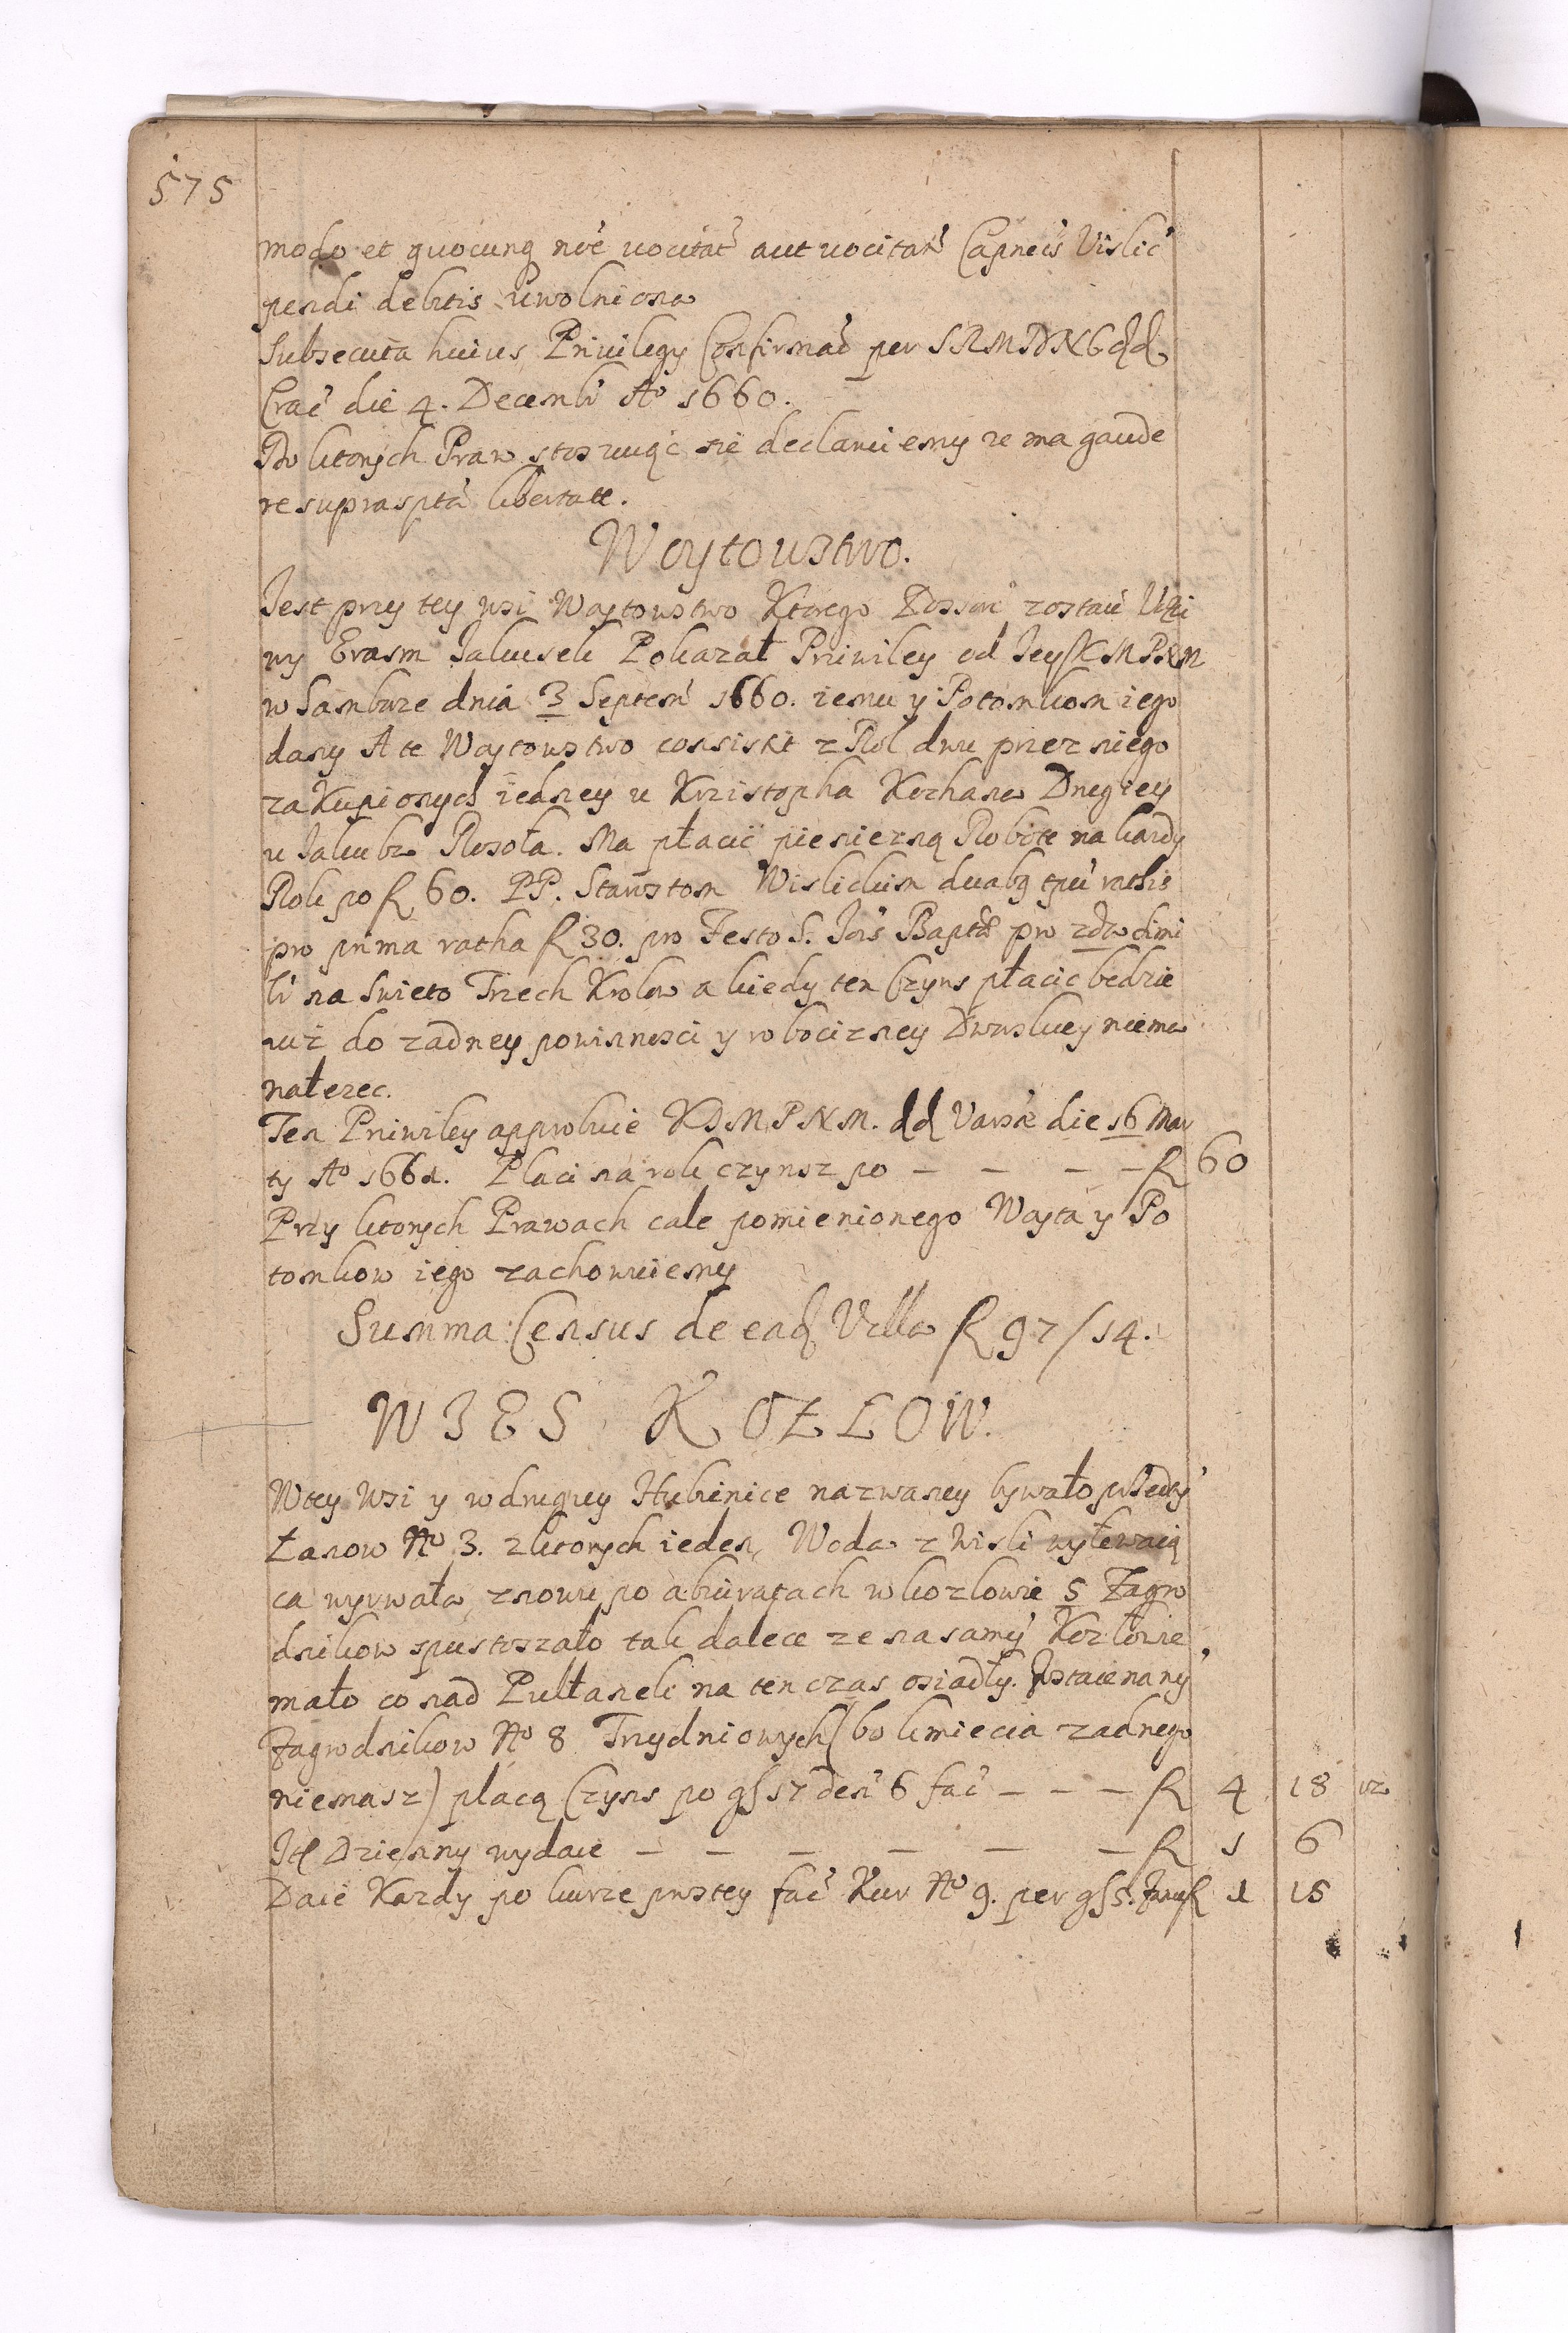 575
modo et quocunq nõe uocitat aut uocitari Capneis Vislic
pendi debitis uwolniona
Subsecuta huius Priuilegy Confirmac per SRMDNC dd
Crac die 4. Decemb Aº 1660.
Do ktorych Praw stosuiąc się declaruiemy ze ma gaude
re suprasptã libertate.
Woytowstwo.
Jest przy tey wsi Woytowstwo Ktorego Possor zostaie Uczi
wy Erasm Jakusek Pokazał Priwiley od Jey K M P N M
w Samborze dnia 3 Septem 1660. iemu y Potomkom iego
dany A te Woytowstwo consistit z Rol dwu przez niego
zakupionych iedney u Krzistopha Kozhana Drugiey
u Jakuba Rosoła. Ma płacić pienierzną Robote na kazdy
Rok po f 60. PP. Starostom Wislickim duabq tpu rathis
pro prima ratha f 30. pro Festo S. Jois Bapta pro 2da dimi
li na Swieto Trzech Krolow a kiedy ten Czyns płacic bedzie
iuz do zadney powinnosci y robocizney Dworskiey niema
nałezec.
Ten Priwiley approbuie KJMPNM. dd Varsæ die 16 Mar
ty Aº 1661. Placi na rok czynsz po — — — — f 60
Przy ktorych Prawach cale pomienionego Woyta y Po
tomkow iego zachowuiemy
Summa Census de eadq Villa f 97/14.
WIES KOZŁOW.
Wtey Wsi y w drugiey Hubenice nazwaney bywało przedty
Łanow Nº 3. z ktorych ieden, Woda z Wisli wylewaią
ca wyrwała, znowu po abiuratach w kozlowie 5 Zagro
dnikow spustoszało tak dalece ze na samy Kozłowie
mało co nad Pułanek na ten czas osiadły. Zostaie na ny
Zagrodnikow Nº 8 Trzydniowych (bo kmiecia zadnego
niemasz) płacą Czyns po gs 17 den 6 fac — — — f 4 18
Itē Dzienny wydaie — — — — — — f 1 6
Daie Kazdy po kurze prostey fac Kur Nº 9. per gs 5. f 1 15